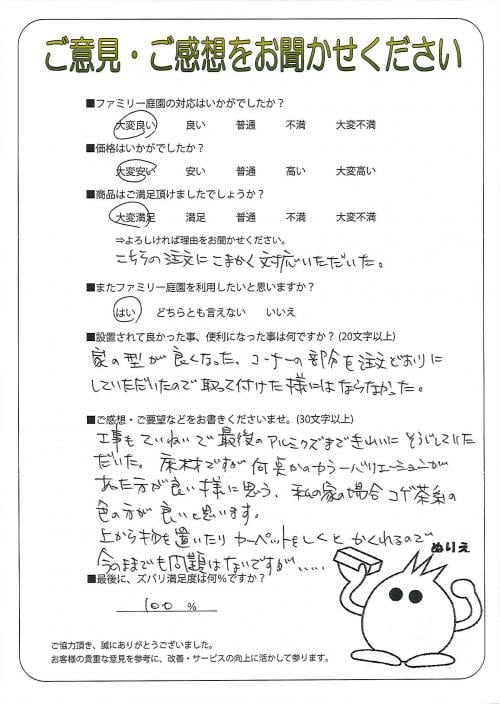 ご意見・ご感想をお聞かせください
■ファミリー庭園の対応はいかがでしたか？
大変良い 良い 普通 不満 大変不満
■価格はいかがでしたか？
大変安い 安い 普通 高い 大変高い
■商品はご満足頂けましたでしょうか？
大変満足 満足 普通 不満 大変不満
⇒よろしければ理由をお聞かせください。
こちらの注文にこまかく対応いただいた。
■またファミリー庭園を利用したいと思いますか？
はい どちらとも言えない いいえ
■設置されて良かった事、便利になった事は何ですか？(20文字以上)
家の型が良くなった。コーナーの部分を注文どおりに
していただいたので取って付けた様にはならなかった。
■ご感想・ご要望などをお書きくださいませ。(30文字以上)
工事もていねいで最後のアルミクズまできれいにそうじしていた
だいた。床材ですが何点かのカラーバリエーションが
あった方が良い様に思う、私の家の場合コゲ茶系の
色の方が良いと思います。
上から物を置いたりカーペットをしくとかくれるので
今のままでも問題はないですが、……
ぬりえ
■最後に、ズバリ満足度は何％ですか？
100 %
ご協力頂き、誠にありがとうございました。
お客様の貴重な意見を参考に、改善・サービスの向上に活かして参ります。